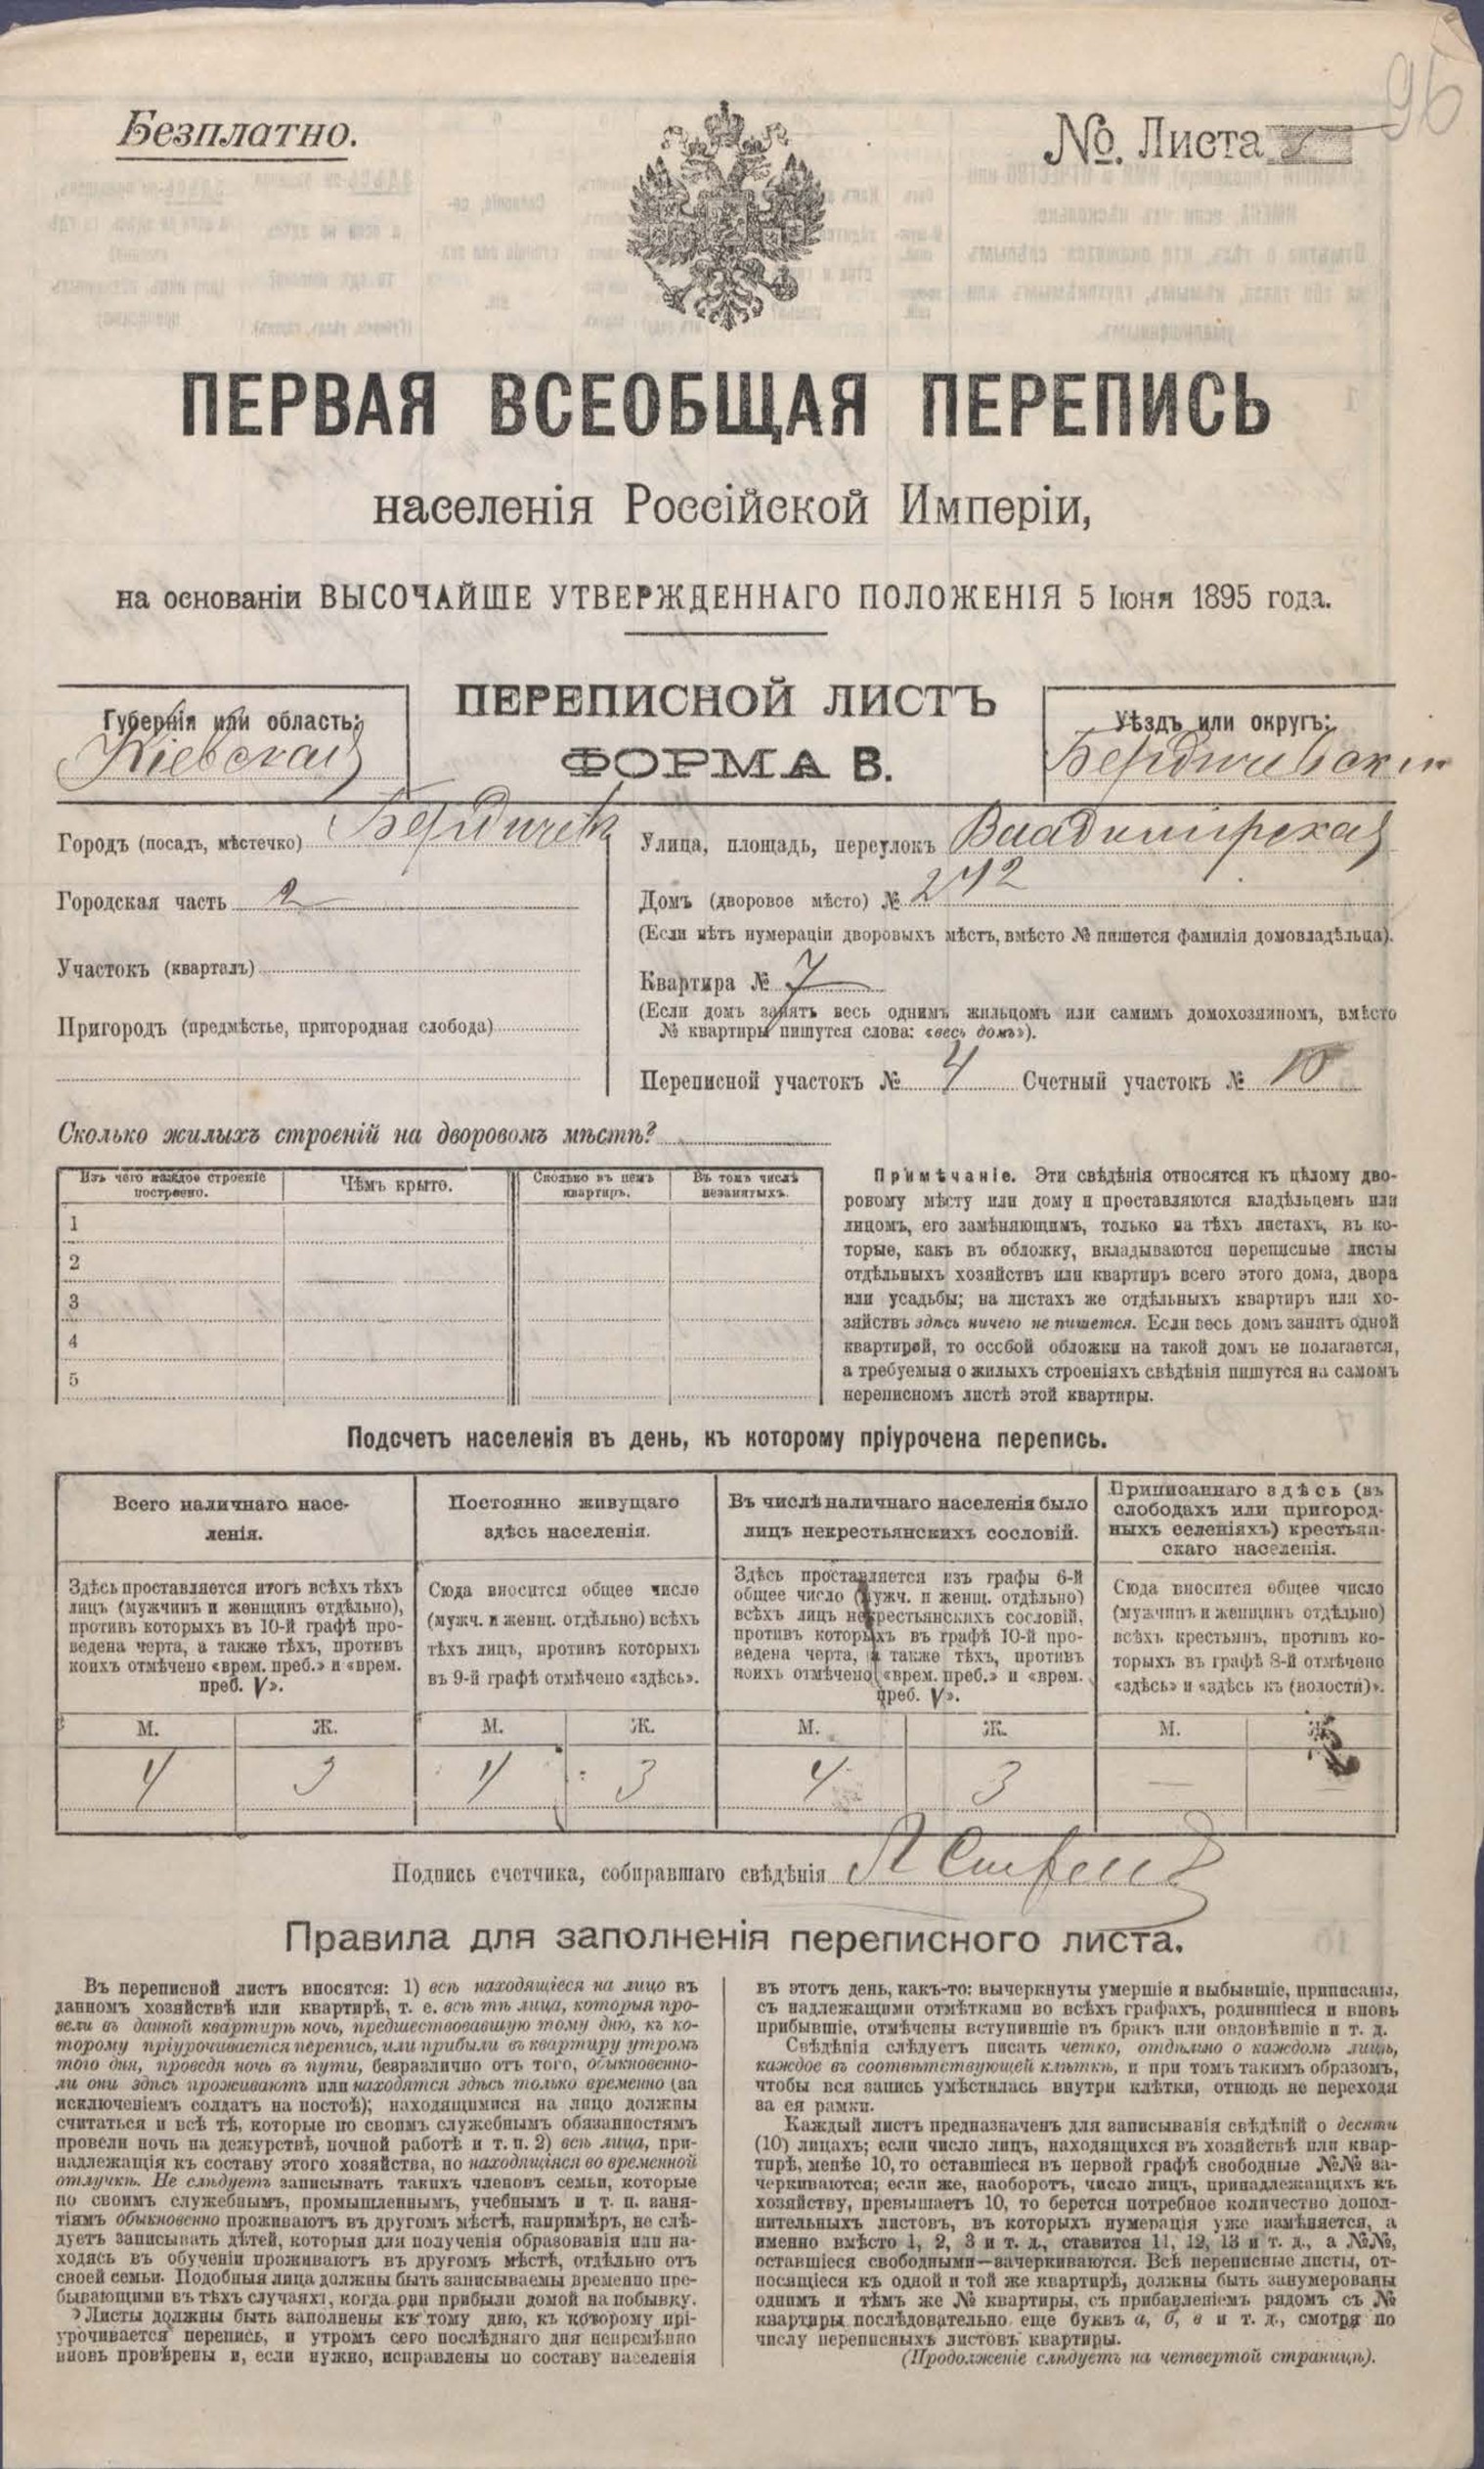 96
Безплатно.
№. Листа
ПЕРВАЯ ВСЕОБЩАЯ ПЕРЕПИСЬ
населенія Россійской Имперіи,
на основаніи ВЫСОЧАЙШЕ УТВЕРЖДЕННАГО ПОЛОЖЕНІЯ 5 Іюня 1895 года.
ПЕРЕПИСНОЙ ЛИСТЪ
ФОРМА В.
Губернія или область:
Кіевская
Уѣздъ или округъ:
Бердичевскій
Городъ (посадъ, мѣстечко) Бердичевъ
Городская часть 2
Участокъ (кварталъ)
Пригородъ (предмѣстье, пригородная слобода)
Улица, площадь, переулокъ Владимірская
Домъ (дворовое мѣсто) № 242
(Если нѣтъ нумераціи дворовыхъ мѣстъ, вмѣсто № пишется фамилія домовладѣльца).
Квартира № 7
(Если домъ занятъ весь однимъ жильцомъ или самимъ домохозяиномъ, вмѣсто
№ квартиры пишутся слова: «весь домъ»).
Переписной участокъ № 4 Счетный участокъ № 10
Сколько жилыхъ строеній на дворовомъ мѣстѣ?
Изъ чего каждое строеніе
построено.
Чѣмъ крыто.
Сколько въ немъ
квартиръ.
Въ томъ числѣ
незанятыхъ.
1
2
3
4
5
Примѣчаніе. Эти свѣдѣнія относятся къ цѣлому дво-
ровому мѣсту или дому и проставляются владѣльцемъ или
лицомъ, его замѣняющимъ, только на тѣхъ листахъ, въ ко-
торые, какъ въ обложку, вкладываются переписные листы
отдѣльныхъ хозяйствъ или квартиръ всего этого дома, двора
или усадьбы; на листахъ же отдѣльныхъ квартиръ или хо-
зяйствъ здѣсь ничего не пишется. Если весь домъ занятъ одной
квартирой, то особой обложки на такой домъ не полагается,
а требуемыя о жилыхъ строеніяхъ свѣдѣнія пишутся на самомъ
переписномъ листѣ этой квартиры.
Подсчетъ населенія въ день, къ которому пріурочена перепись.
Всего наличнаго насе-
ленія.
Здѣсь проставляется итогъ всѣхъ тѣхъ
лицъ (мужчинъ и женщинъ отдѣльно),
противъ которыхъ въ 10-й графѣ про-
ведена черта, а также тѣхъ, противъ
коихъ отмѣчено «врем. преб.» и «врем.
преб. V».
М. Ж.
4 3
Постоянно живущаго
здѣсь населенія.
Сюда вносится общее число
(мужч. и женщ. отдѣльно) всѣхъ
тѣхъ лицъ, противъ которыхъ
въ 9-й графѣ отмѣчено «здѣсь».
М. Ж.
4 3
Въ числѣ наличнаго населенія было
лицъ некрестьянскихъ сословій.
Здѣсь проставляется изъ графы 6-й
общее число (мужч. и женщ. отдѣльно)
всѣхъ лицъ некрестьянскихъ сословій,
противъ которыхъ въ графѣ 10-й про-
ведена черта, а также тѣхъ, противъ
коихъ отмѣчено «врем. преб.» и «врем.
преб. V».
М. Ж.
4 3
Приписаннаго здѣсь (въ
слободахъ или пригород-
ныхъ селеніяхъ) крестьян-
скаго населенія.
Сюда вносится общее число
(мужчинъ и женщинъ отдѣльно)
всѣхъ крестьянъ, противъ ко-
торыхъ въ графѣ 8-й отмѣчено
«здѣсь» и «здѣсь къ (волости)».
М. Ж.
— —
Подпись счетчика, собиравшаго свѣдѣнія
Правила для заполненія переписного листа.
Въ переписной листъ вносятся: 1) всѣ находящіеся на лицо въ
данномъ хозяйствѣ или квартирѣ, т. е. всѣ тѣ лица, которыя про-
вели въ данной квартирѣ ночь, предшествовавшую тому дню, къ ко-
торому пріурочивается перепись, или прибыли въ квартиру утромъ
того дня, проведя ночь въ пути, безразлично отъ того, обыкновенно-
ли они здѣсь проживаютъ или находятся здѣсь только временно (за
исключеніемъ солдатъ на постоѣ); находящимися на лицо должны
считаться и всѣ тѣ, которые по своимъ служебнымъ обязанностямъ
провели ночь на дежурствѣ, ночной работѣ и т. п. 2) всѣ лица, при-
надлежащія къ составу этого хозяйства, но находящіяся во временной
отлучкѣ. Не слѣдуетъ записывать такихъ членовъ семьи, которые
по своимъ служебнымъ, промышленнымъ, учебнымъ и т. п. заня-
тіямъ обыкновенно проживаютъ въ другомъ мѣстѣ, напримѣръ, не слѣ-
дуетъ записывать дѣтей, которыя для полученія образованія или на-
ходясь въ обученіи проживаютъ въ другомъ мѣстѣ, отдѣльно отъ
своей семьи. Подобныя лица должны быть записываемы временно пре-
бывающими въ тѣхъ случаяхъ, когда они прибыли домой на побывку.
Листы должны быть заполнены къ тому дню, къ которому прі-
урочивается перепись, и утромъ сего послѣдняго дня непремѣнно
вновь провѣрены и, если нужно, исправлены по составу населенія
въ этотъ день, какъ-то: вычеркнуты умершіе и выбывшіе, приписаны,
съ надлежащими отмѣтками во всѣхъ графахъ, родившіеся и вновь
прибывшіе, отмѣчены вступившіе въ бракъ или овдовѣвшіе и т. д.
Свѣдѣнія слѣдуетъ писать четко, отдѣльно о каждомъ лицѣ,
каждое въ соотвѣтствующей клѣткѣ, и при томъ такимъ образомъ,
чтобы вся запись умѣстилась внутри клѣтки, отнюдь не переходя
за ея рамки.
Каждый листъ предназначенъ для записыванія свѣдѣній о десяти
(10) лицахъ; если число лицъ, находящихся въ хозяйствѣ или квар-
тирѣ, менѣе 10, то оставшіеся въ первой графѣ свободные №№ за-
черкиваются; если же, наоборотъ, число лицъ, принадлежащихъ къ
хозяйству, превышаетъ 10, то берется потребное количество допол-
нительныхъ листовъ, въ которыхъ нумерація уже измѣняется, а
именно вмѣсто 1, 2, 3 и т. д., ставится 11, 12, 13 и т. д., а №№,
оставшіеся свободными—зачеркиваются. Всѣ переписные листы, от-
носящіеся къ одной и той же квартирѣ, должны быть занумерованы
однимъ и тѣмъ же № квартиры, съ прибавленіемъ рядомъ съ №
квартиры послѣдовательно еще буквъ а, б, в и т. д., смотря по
числу переписныхъ листовъ квартиры.
(Продолженіе слѣдуетъ на четвертой страницѣ).